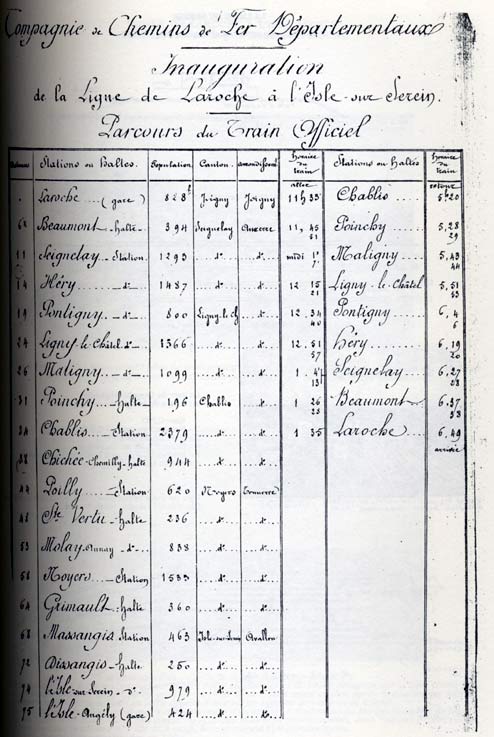 Compagnie de Chemins de Fer Départementaux
Inauguration
de la Ligne de Laroche à l'Isle-sur-Serein.
Parcours du Train Officiel
Stations ou Haltes. Population Canton. Horaire du Train aller Stations ou Haltes Horaire du Train
Laroche (gare) 828 Joigny Joigny 11h 35 Chablis 5h20
Beaumont Halte 394 Seignelay Auxerre 11, 45 51 Poinchy 5,28 29
11 Seignelay Station 1293 d° d° midi 1' 7 Maligny 5,43 44
14 Héry d° 1487 d° d° 12 15 21 Ligny-le-Châtel 5,51 53
19 Pontigny d° 800 Ligny-le-Ch d° 12.34 40 Pontigny 6,4 6
24 Ligny-le-Châtel d° 1366 d° d° 12.51 57 Héry 6,19 20
26 Maligny d° 1099 d° d° 1 Seignelay 6,27 28
31 Poinchy Halte 196 Chablis d° 1 26 Beaumont 6,37 38
34 Chablis Station 2379 d° d° 1 35 Laroche 6,49
arrivée
38 Chichée-Chemilly-halte 944 d° d°
44 Poilly Station 620 Noyers Tonnerre
48 Ste Vertu Halte 236 d° d°
53 Molay d° 838 d° d°
58 Noyers Station 1533 d° d°
64 Grimault halte 360 d° d°
68 Massangis Station 463 Avallon
72 Dissangis halte 250 d° d°
74 l'Isle-sur-Serein d° 979 d° d°
75 l'Isle-Angély (gare) 424 d° d°